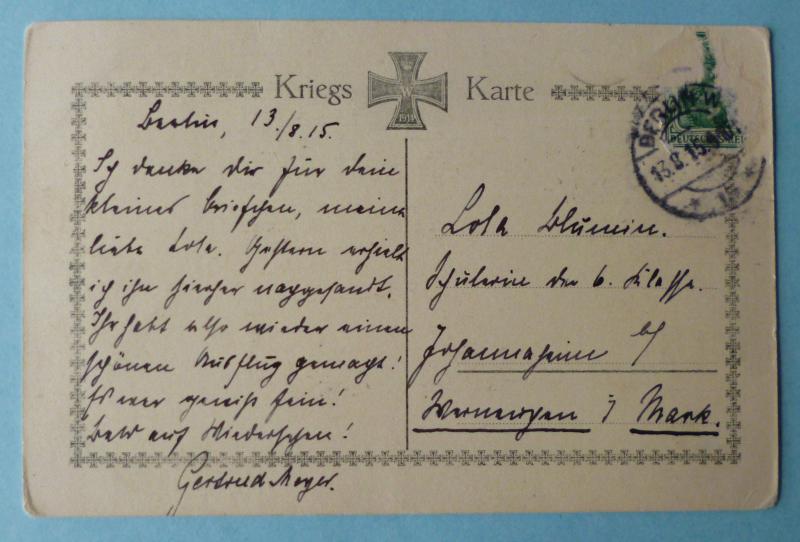 Kriegs Karte
W
1914
BERLIN W
13.8.15.
DEUTSCHES REICH
Berlin, 13./8.15.
Ich danke Dir für dein
kleines Briefchen, meine
liebe Lola. Gestern erhielt
ich ihn hierher nachgesandt.
Ihr habt also wieder einen
schönen Ausflug gemacht!
Es war gewiß fein!
Bald auf Wiedersehen!
Gertrud Meyer.
Lola
Schülerin der 6. Klasse.
Johannaheim b/
Werneuchen i/ Mark.